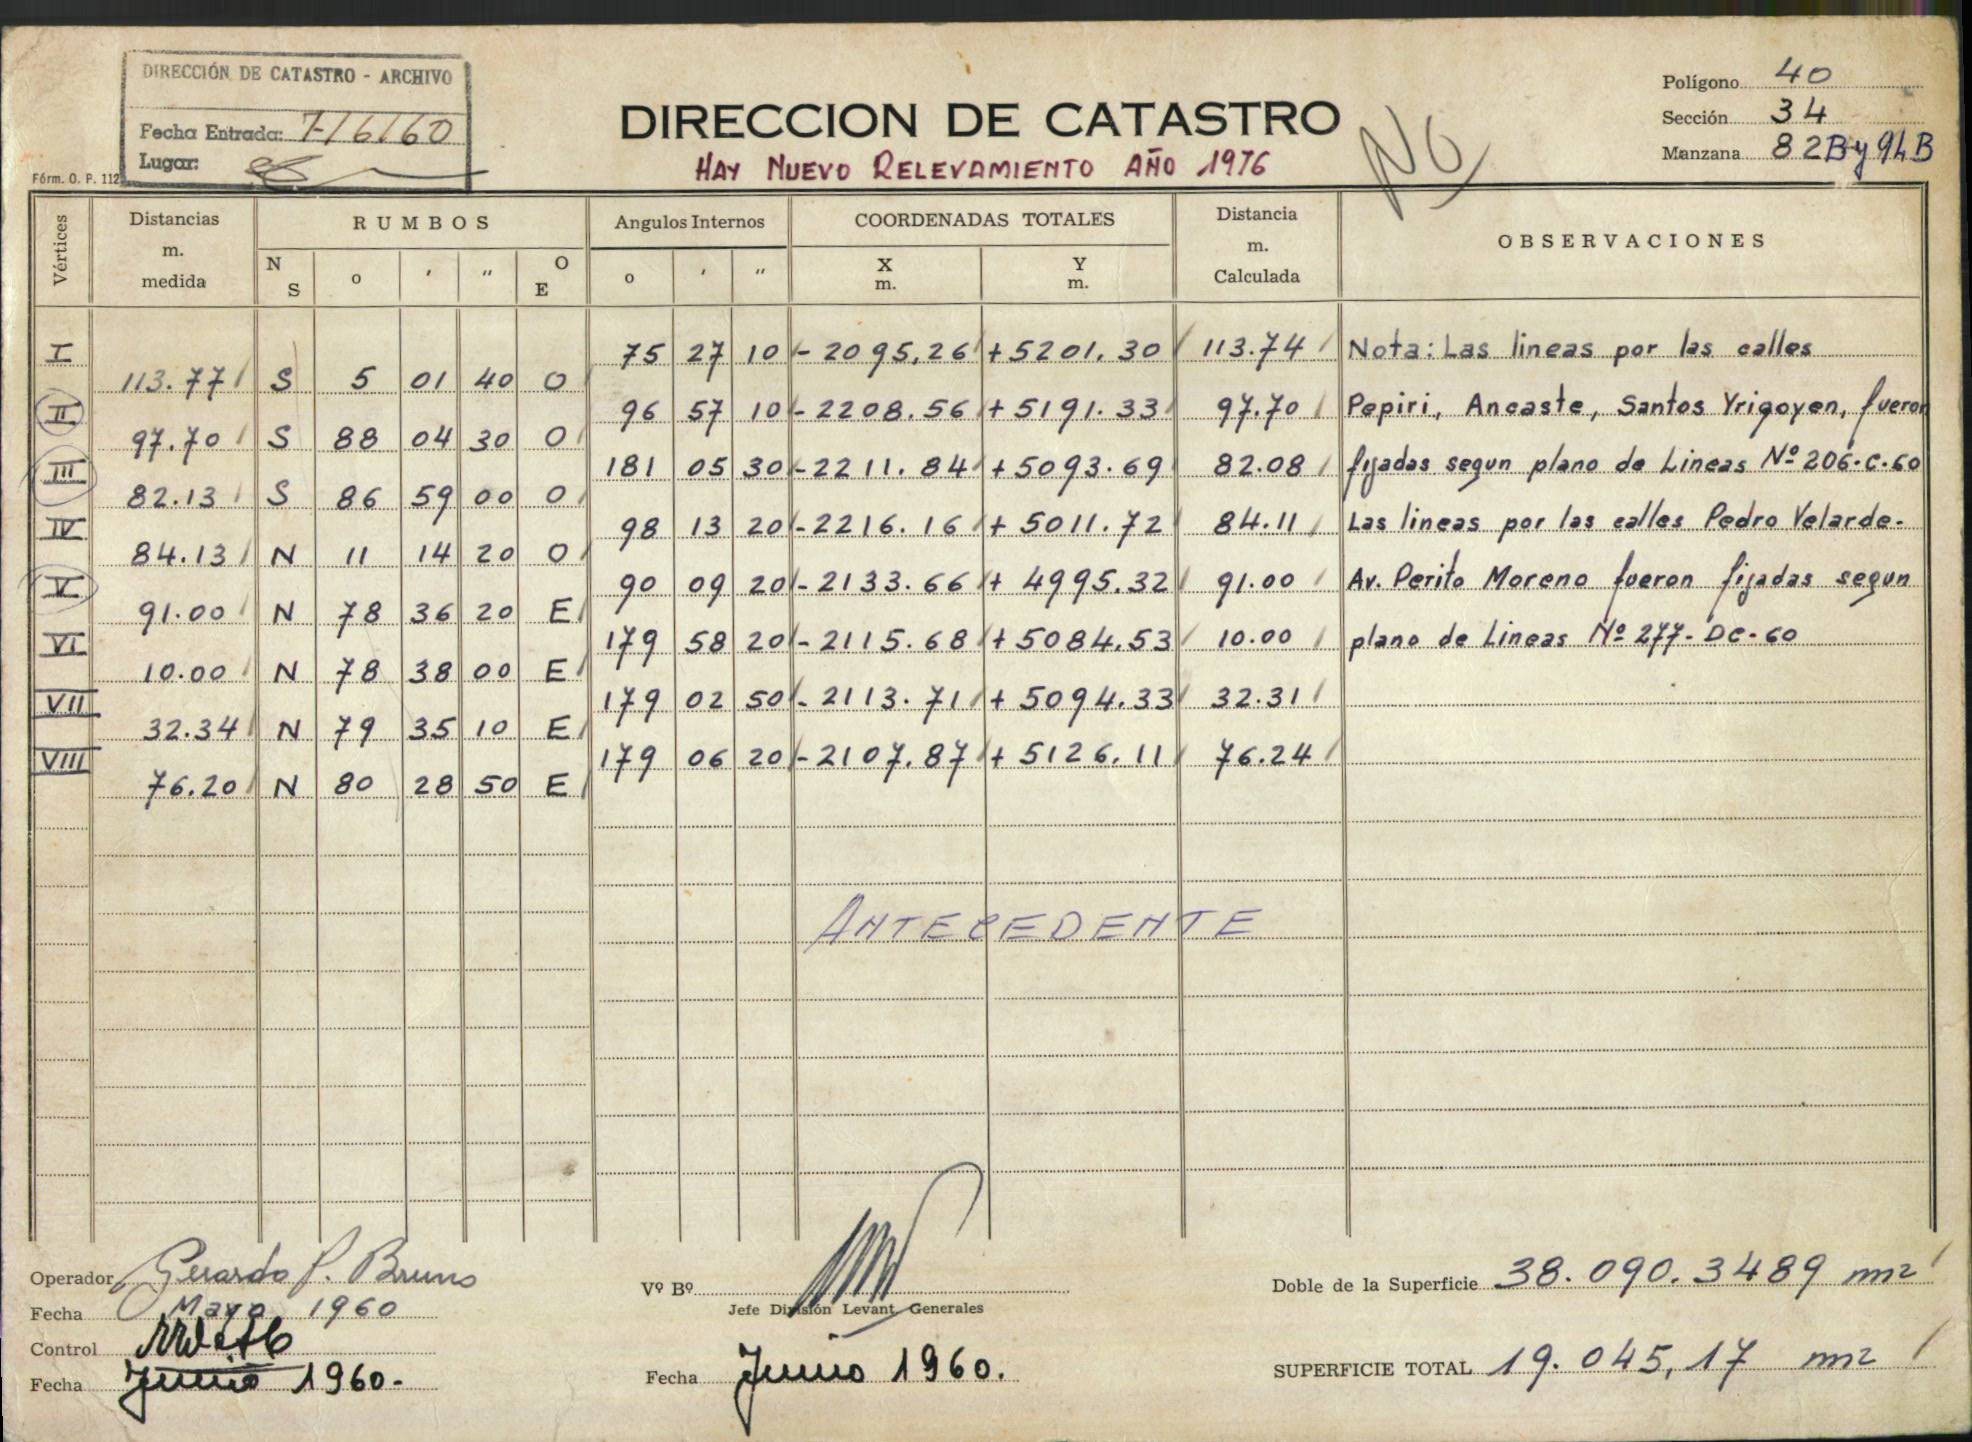 DIRECCIÓN DE CATASTRO - ARCHIVO
Fecha Entrada: 7/6/60
Lugar:
Fórm. O. P. 112
DIRECCION DE CATASTRO
HAY NUEVO RELEVAMIENTO AÑO 1976
No
Polígono 40
Sección 34
Manzana 82B y 94B
Vértices
Distancias m. medida
RUMBOS
N S o ' " O E
Angulos Internos
o ' "
COORDENADAS TOTALES
X m. Y m.
Distancia m. Calculada
OBSERVACIONES
I 75 27 10 - 2095.26 + 5201.30 113.74 Nota: Las lineas por las calles
113.77 S 5 01 40 O
II 96 57 10 - 2208.56 + 5191.33 97.70 Pepiri, Ancaste, Santos Yrigoyen, fueron
97.70 S 88 04 30 O
III 181 05 30 - 2211.84 + 5093.69 82.08 fijadas segun plano de Lineas Nº 206-C-60
82.13 S 86 59 00 O
IV 98 13 20 - 2216.16 + 5011.72 84.11 Las lineas por las calles Pedro Velarde-
84.13 N 11 14 20 O
V 90 09 20 - 2133.66 + 4995.32 91.00 Av. Perito Moreno fueron fijadas segun
91.00 N 78 36 20 E
VI 179 58 20 - 2115.68 + 5084.53 10.00 plano de Lineas Nº 277-DC-60
10.00 N 78 38 00 E
VII 179 02 50 - 2113.71 + 5094.33 32.31
32.34 N 79 35 10 E
VIII 179 06 20 - 2107.87 + 5126.11 76.24
76.20 N 80 28 50 E
ANTECEDENTE
Operador Gerardo P. Bruno
Fecha Mayo 1960
Control
Fecha Junio 1960.
Vº Bº
Jefe División Levant. Generales
Fecha Junio 1960.
Doble de la Superficie 38.090.3489 m2
SUPERFICIE TOTAL 19.045,17 m2